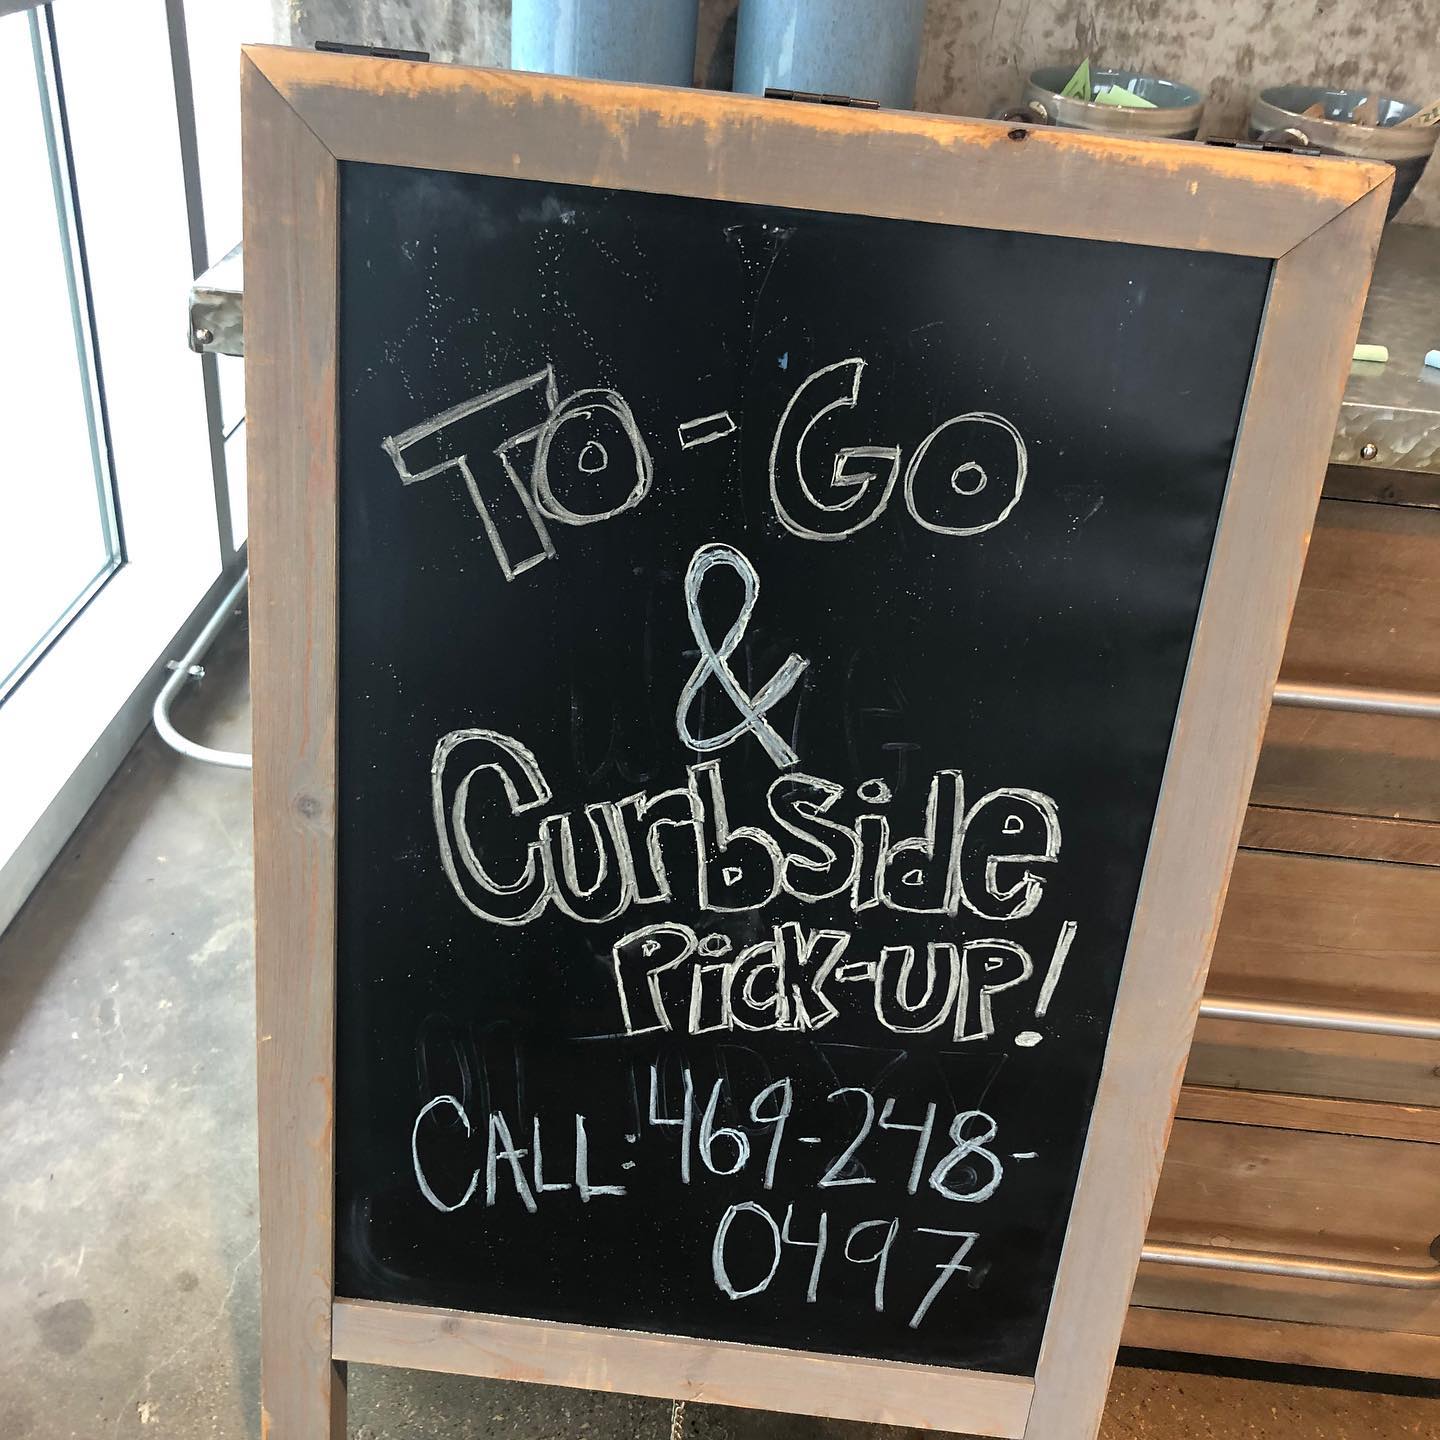 To-Go
&
Curbside
Pick-up!
CALL: 469-248-
0497